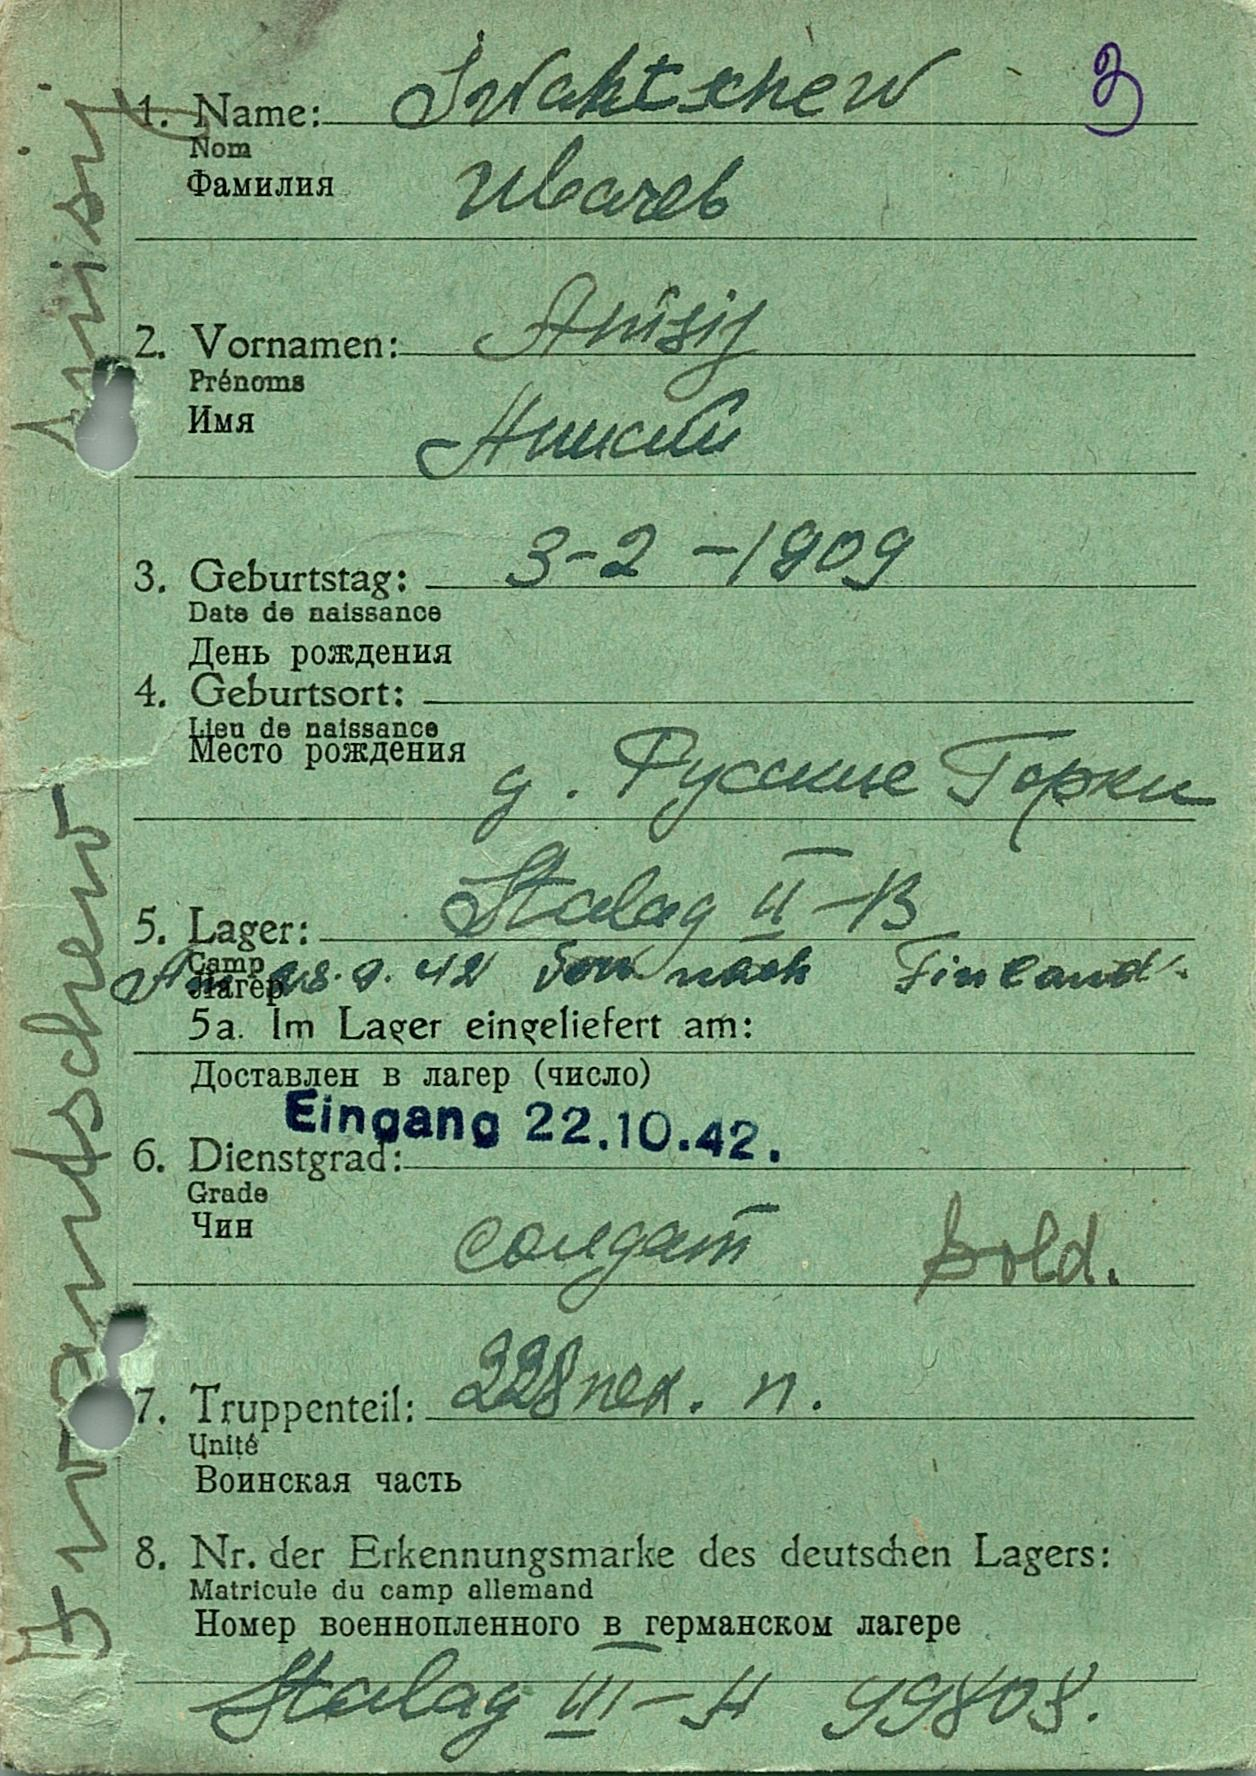 3
1. Name: Iwaktschew
Nom
Фамилия Ивачев
2. Vornamen: Anisij
Prénoms
Имя Анисий
3. Geburtstag: 3-2-1909
Date de naissance
День рождения
4. Geburtsort:
Lieu de naissance
Место рождения
д. Русские Горки
5. Lager: Stalag II-B
Camp
Лагер
Am 9. 42 von nach Finland.
5a. Im Lager eingeliefert am:
Доставлен в лагер (число)
Eingang 22.10.42.
6. Dienstgrad:
Grade
Чин
солдат Sold.
7. Truppenteil: 228 пех. п.
Unité
Воинская часть
8. Nr. der Erkennungsmarke des deutschen Lagers:
Matricule du camp allemand
Номер военнопленного в германском лагере
Stalag III-A 99808.
Iwandschew Anisij